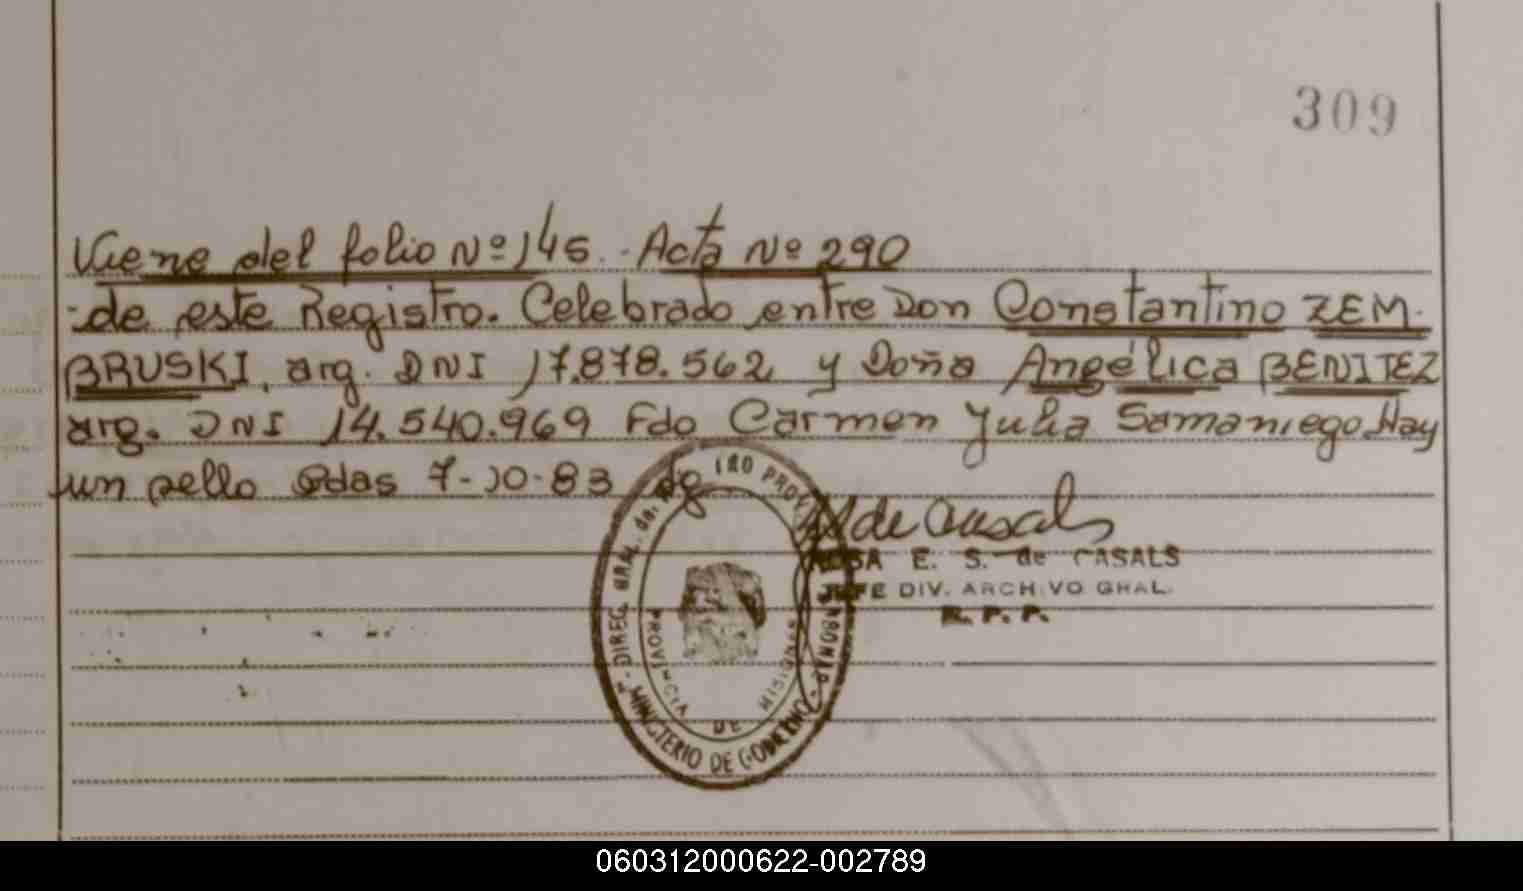 309
Viene del folio Nº 145. - Acta Nº 290
-de este Registro. Celebrado entre Don Constantino ZEM-
BRUSKI, arg. DNI 17.878.562 y Doña Angélica BENITEZ
arg. DNI 14.540.969 Fdo Carmen Julia Samaniego Hay
un sello Pdas 7-10-83
de Casals
ROSA E. S. de CASALS
JEFE DIV. ARCHIVO GRAL.
R.P.P.
DIREC. GRAL. de
MINISTERIO DE GOBIERNO
PROVINCIA DE MISIONES
060312000622-002789